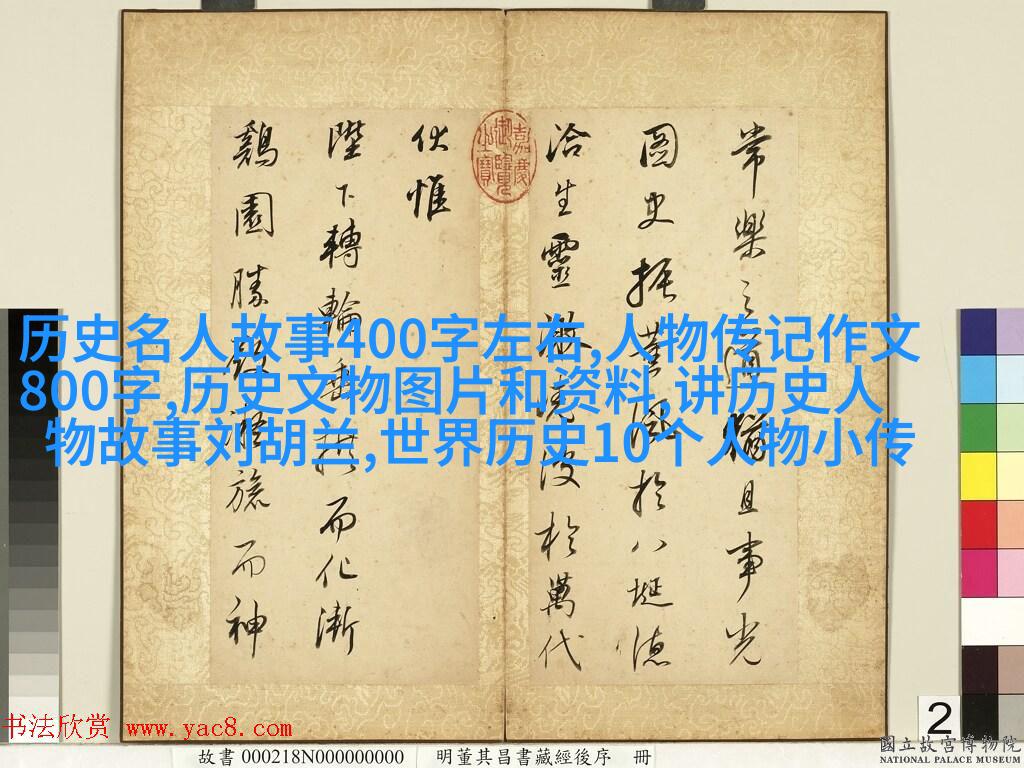 常樂之猶且事光
圖史振薰風於八埏德
洽生靈激堯波於萬代
伏惟
陛下轉輪垂拱而化漸
鷄園勝殿凝旒而神
嘉慶御覽之寶
历史名人故事400字左右,人物传记作文
800字,历史文物图片和资料,讲历史人
物故事刘胡兰,世界历史10个人物小传
2
书法欣赏 www.yac8.com
故書 000218N000000000 明董其昌書藏經後序 冊
國立故宮博物院
NATIONAL PALACE MUSEUM